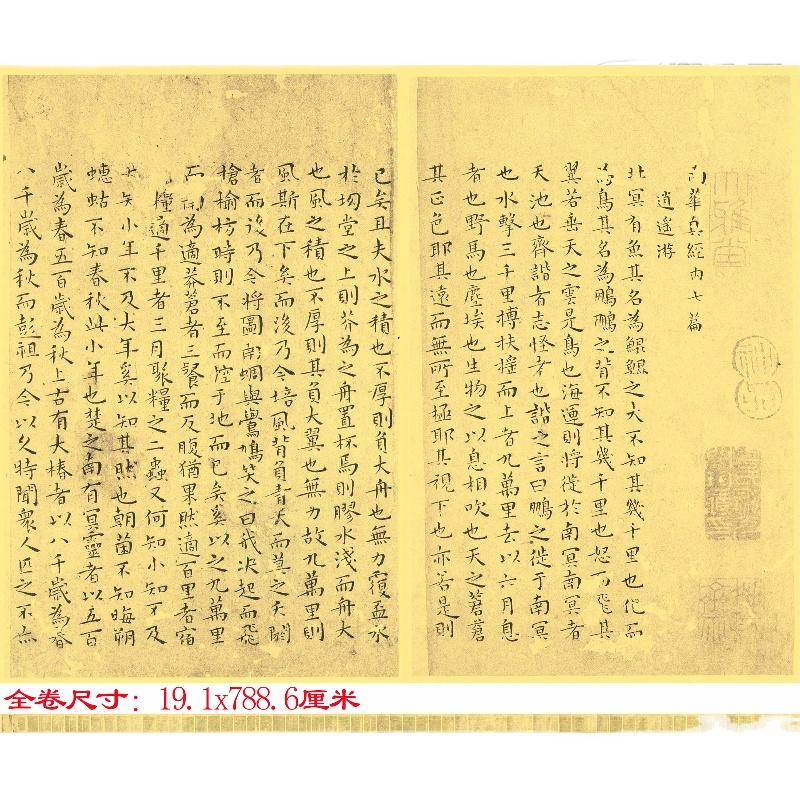 南華真經內七篇
逍遙游
北冥有魚其名為鯤鯤之大不知其幾千里也化而
為鳥其名為鵬鵬之背不知其幾千里也怒而飛其
翼若垂天之雲是鳥也海運則將徙於南冥南冥者
天池也齊諧者志怪者也諧之言曰鵬之徙于南冥
也水擊三千里摶扶搖而上者九萬里去以六月息
者也野馬也塵埃也生物之以息相吹也天之蒼蒼
其正色耶其遠而無所至極耶其視下也亦若是則
已矣且夫水之積也不厚則負大舟也無力覆盃水
於坳堂之上則芥為之舟置杯焉則膠水淺而舟大
也風之積也不厚則其負大翼也無力故九萬里則
風斯在下矣而後乃今培風背負青天而莫之夭閼
者而後乃今將圖南蜩與鷽鳩笑之曰我決起而飛
槍榆枋時則不至而控于地而已矣奚以之九萬里
而為適莽蒼者三飡而反腹猶果然適百里者宿
糧適千里者三月聚糧之二蟲又何知小知不及
大知小年不及大年奚以知其然也朝菌不知晦朔
蟪蛄不知春秋此小年也楚之南有冥靈者以五百
歲為春五百歲為秋上古有大椿者以八千歲為春
八千歲為秋而彭祖乃今以久特聞衆人匹之不亦
全卷尺寸：19.1x788.6厘米